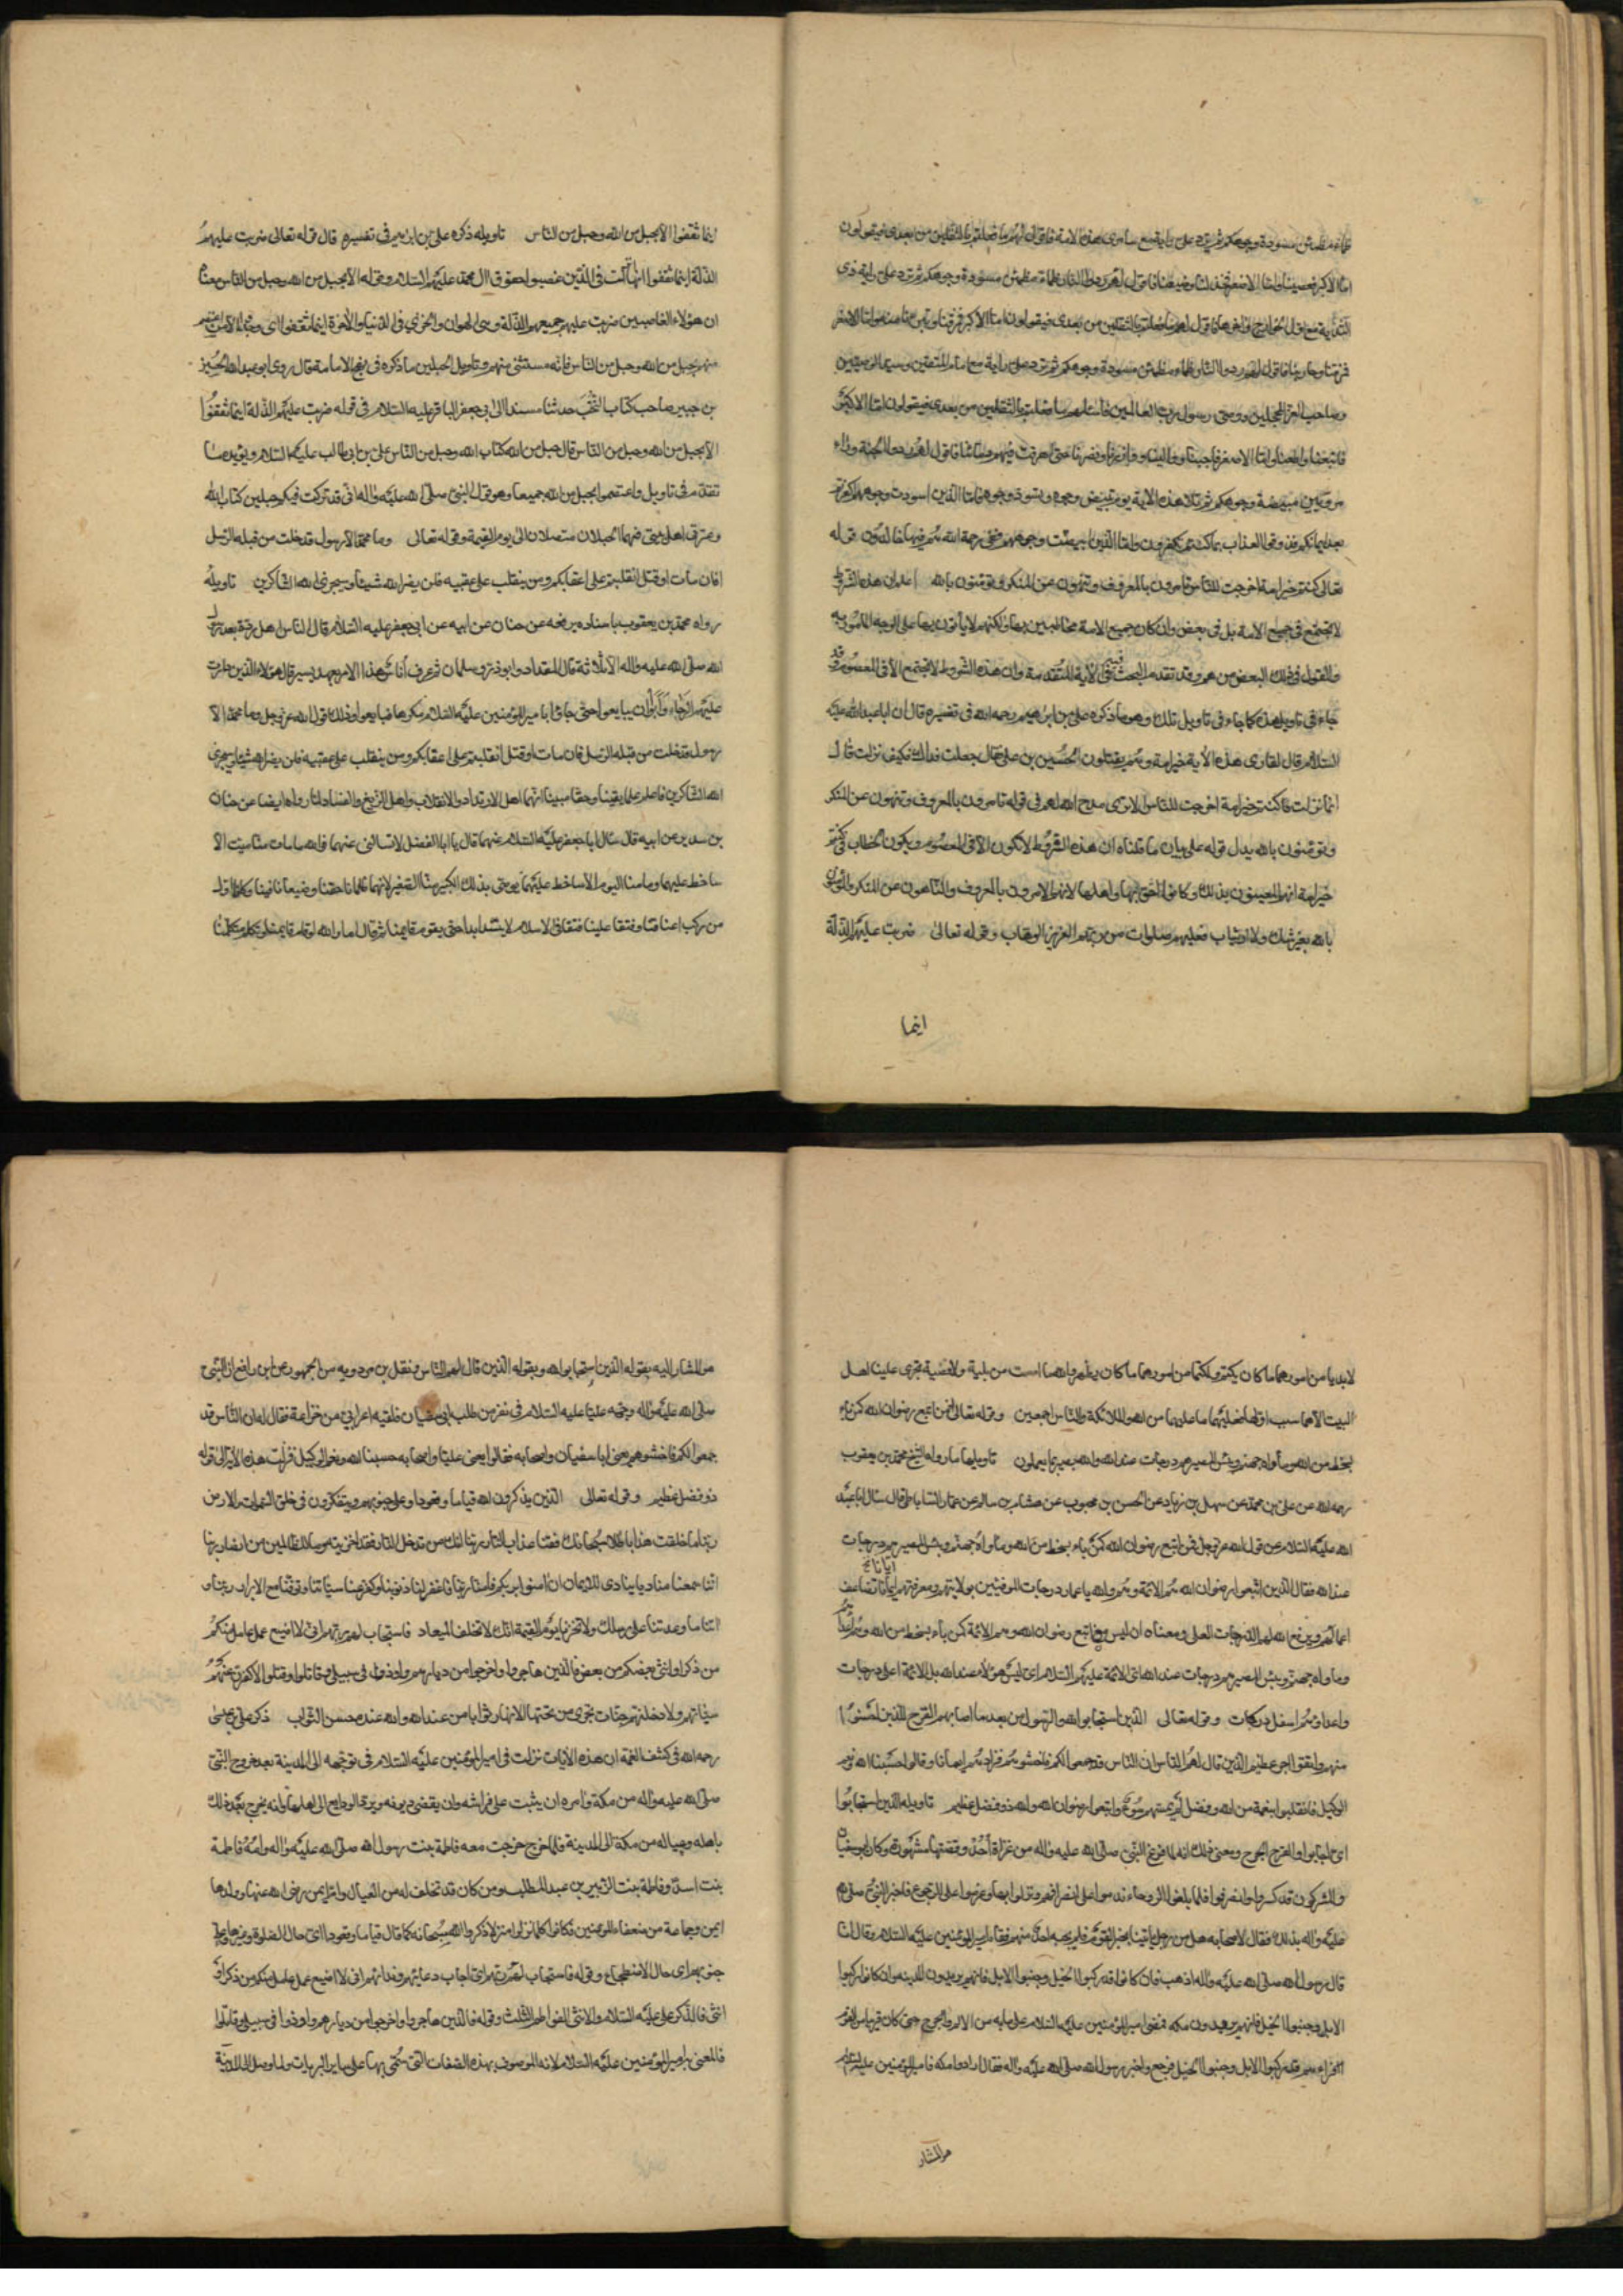 ظماء مظمئين مسودة وجوهكم ثم ترد على راية مع سامري هذه الامة فاقول لهم ما فعلتم بالثقلين من بعدي فيقولون
اما الاكبر فعصيناه واما الاصغر فخذلناه وضيعناه فاقول لهم ردوا النار ظماء مظمئين مسودة وجوهكم ثم ترد على راية ذي
الثدية مع اول الخوارج واخرهم فاقول لهم ما فعلتم بالثقلين من بعدي فيقولون اما الاكبر فمزقناه وتبرأنا منه واما الاصغر
فردوا النار ظماء مظمئين مسودة وجوهكم ثم ترد على راية مع امام المتقين وسيد الوصيين
وصاحب الغر المحجلين ووصي رسول رب العالمين فاسألهم ما فعلتم بالثقلين من بعدي فيقولون اما الاكبر
فاتبعناه واطعناه واما الاصغر فاحببناه وواليناه ووازرناه ونصرناه حتى اهرقت فيهم دماؤنا فاقول لهم ردوا الجنة رواء
مرويين مبيضة وجوهكم ثم تلا هذه الاية يوم تبيض وجوه وتسود وجوه فاما الذين اسودت وجوههم اكفرتم
بعد ايمانكم فذوقوا العذاب بما كنتم تكفرون واما الذين ابيضت وجوههم ففي رحمة الله هم فيها خالدون قوله
تعالى كنتم خير امة اخرجت للناس تأمرون بالمعروف وتنهون عن المنكر وتؤمنون بالله اعلم ان هذه الشروط
لا تجتمع في جميع الامة بل في بعض وان كان جميع الامة مخاطبين بها ولكنهم لا يأتون بها على الوجه المأمور به
والقول في ذلك البعض من هم وقد تقدم البحث فيه في الآية المتقدمة وان هذه الشروط لا تجتمع الا في المعصوم وقد
جاء في تاويل هذه كما جاء في تاويل تلك وهو ما ذكره علي بن ابراهيم رحمه الله في تفسيره قال ان ابا عبد الله عليه
السلام قال لقارئ هذه الآية خير امة وهم يقتلون الحسين بن علي فقال جعلت فداك فكيف نزلت قال
انما نزلت فاكنتم خير امة اخرجت للناس الا ترى مدح الله لهم في قوله تامرون بالمعروف وتنهون عن المنكر
وتؤمنون بالله يدل قوله على بيان ما قلناه ان هذه الشروط لا تكون الا في المعصوم ويكون الخطاب في كنتم
خير امة انهم المعنيون بذلك وكانوا احق بها واهلها لانهم الامرون بالمعروف والناهون عن المنكر والمؤمنون
بالله بغير شك ولا ارتياب فعليهم صلوات من ربهم العزيز الوهاب وقوله تعالى ضربت عليهم الذلة
اينما
اينما ثقفوا الا بحبل من الله وحبل من الناس تاويله ذكره علي بن ابراهيم في تفسيره قال قوله تعالى ضربت عليهم
الذلة اينما ثقفوا انها نزلت في الذين غصبوا حقوق ال محمد عليهم السلام وقوله الا بحبل من الله وحبل من الناس معناه
ان هؤلاء الغاصبين ضربت عليهم جميعهم الذلة وهي الهوان والخزي في الدنيا والآخرة اينما ثقفوا اي وجدوا الا من اعتصم
منهم بحبل من الله وحبل من الناس فانه مستثنى منهم وتاويل الحبلين ما ذكره في نهج الامامة قال روى ابو عبد الله الحسين
بن جبير صاحب كتاب النخب حدثنا مسندا الى ابي جعفر الباقر عليه السلام في قوله ضربت عليهم الذلة اينما ثقفوا
الا بحبل من الله وحبل من الناس قال حبل من الله كتاب الله وحبل من الناس علي بن ابي طالب عليهما السلام ويؤيده ما
تقدم في تاويل واعتصموا بحبل الله جميعا وهو قول النبي صلى الله عليه واله اني قد تركت فيكم حبلين كتاب الله
وعترتي اهل بيتي فهما الحبلان متصلان الى يوم القيمة وقوله تعالى وما محمد الا رسول قد خلت من قبله الرسل
افان مات او قتل انقلبتم على اعقابكم ومن ينقلب على عقبيه فلن يضر الله شيئا وسيجزي الله الشاكرين تاويله
رواه محمد بن يعقوب باسناده يرفعه عن حنان عن ابيه عن ابي جعفر عليه السلام قال كان الناس اهل ردة بعد رسول
الله صلى الله عليه واله الا ثلاثة قال المقداد وابو ذر وسلمان ثم عرف اناس هذا الامر بعد يسير قال هؤلاء الذين دارت
عليهم الرحا وابوا ان يبايعوا حتى جاؤا بامير المؤمنين عليه السلام مكرها فبايعوا وذلك قول الله عز وجل وما محمد الا
رسول قد خلت من قبله الرسل فان مات او قتل انقلبتم على اعقابكم ومن ينقلب على عقبيه فلن يضر الله شيئا وسيجزي
الله الشاكرين فاعلم علما يقينا وحقا مبينا انهما اهل الارتداد والانقلاب واهل الزيغ والفساد لما رواه ايضا عن حنان
بن سدير عن ابيه قال سئل ابا جعفر عليه السلام عنهما قال يا ابا الفضل لا تسالني عنهما فوالله ما مات منا ميت الا
ساخط عليهما وما منا اليوم الا ساخط عليهما يوصي بذلك الكبير منا الصغير لانهما ظلمانا حقنا وضيعانا فيئنا وكانا اول
من ركب اعناقنا وفتقا علينا فتقا في الاسلام لا يستد ابدا حتى يقوم قايمنا ثم قال اما والله لو قام قايمنا وتكلم متكلمنا
لابديا من امورهما ما كان يكتم ولكتما من امورهما ما كان يظهر والله ما امست من بلية ولا قضية تجري علينا اهل
البيت الا هما سبب اولها فعليهما ما عليهما من الله والملائكة والناس اجمعين وقوله تعالى افمن اتبع رضوان الله كمن باء
بسخط من الله ومأواه جهنم وبئس المصير هم درجات عند الله والله بصير بما يعملون تاويلها ما رواه الشيخ محمد بن يعقوب
رحمه الله عن علي بن محمد عن سهل بن زياد عن الحسن بن محبوب عن هشام بن سالم عن عمار الساباطي قال سئل ابا عبد
الله عليه السلام عن قول الله عز وجل افمن اتبع رضوان الله كمن باء بسخط من الله ومأواه جهنم وبئس المصير هم درجات
عند الله فقال الذين اتبعوا رضوان الله هم الائمة وهم والله يا عمار درجات المؤمنين بولايتهم ومعرفتهم ايانا تضاعف
اعمالهم ويرفع الله لهم الدرجات العلى ومعناه ان ليس من اتبع رضوان الله وهم الائمة كمن باء بسخط من الله وهم اعداؤهم
ومأواه جهنم وبئس المصير هم درجات عند الله اي الائمة عليهم السلام اي ليس هؤلاء عند الله بل الائمة اعلى درجات
واعداؤهم اسفل دركات وقوله تعالى الذين استجابوا لله والرسول من بعد ما اصابهم القرح للذين احسنوا
منهم واتقوا اجر عظيم الذين قال لهم الناس ان الناس قد جمعوا لكم فاخشوهم فزادهم ايمانا وقالوا حسبنا الله ونعم
الوكيل فانقلبوا بنعمة من الله وفضل لم يمسسهم سوء واتبعوا رضوان الله والله ذو فضل عظيم تاويله الذين استجابوا
اي اجابوا والقرح الجرح ومعنى ذلك انه لما فرغ النبي صلى الله عليه واله من غزاة احد وقصتها مشهورة وكان ابو سفيان
والمشركون قد كسروا وانصرفوا فلما بلغوا الروحاء ندموا على انصرافهم ونزلوا بها وعزموا على الرجوع فاخبر النبي صلى الله
عليه واله بذلك فقال لاصحابه هل من رجل ياتينا بخبر القوم فلم يجبه احد منهم فقام امير المؤمنين عليه السلام وقال انا
قال رسول الله صلى الله عليه واله اذهب فان كانوا قد ركبوا الخيل وجنبوا الابل فانهم يريدون المدينة وان كانوا ركبوا
الابل وجنبوا الخيل فانهم يريدون مكة فمضى امير المؤمنين عليه السلام على ما به من الالم والجروح حتى كان قريبا من القوم
فراهم قد ركبوا الابل وجنبوا الخيل فرجع واخبر رسول الله صلى الله عليه واله فقال ارادوا مكة فامير المؤمنين عليه السلام
هو المشار
هو المشار اليه بقوله الذين استجابوا لله وبقوله الذين قال لهم الناس ونقل بن مردويه من الجمهور عن ابن رافع ان النبي
صلى الله عليه واله وجه عليا عليه السلام في نفر من طلب ابي سفيان فلقيه اعرابي من خزاعة فقال له ان الناس قد
جمعوا لكم فاخشوهم يعني ابا سفيان واصحابه فقالوا يعني عليا واصحابه حسبنا الله ونعم الوكيل فنزلت هذه الآية الى قوله
ذو فضل عظيم وقوله تعالى الذين يذكرون الله قياما وقعودا وعلى جنوبهم ويتفكرون في خلق السموات والارض
ربنا ما خلقت هذا باطلا سبحانك فقنا عذاب النار ربنا انك من تدخل النار فقد اخزيته وما للظالمين من انصار ربنا
اننا سمعنا مناديا ينادي للايمان ان امنوا بربكم فامنا ربنا فاغفر لنا ذنوبنا وكفر عنا سيئاتنا وتوفنا مع الابرار ربنا و
اتنا ما وعدتنا على رسلك ولا تخزنا يوم القيمة انك لا تخلف الميعاد فاستجاب لهم ربهم اني لا اضيع عمل عامل منكم
من ذكر او انثى بعضكم من بعض فالذين هاجروا واخرجوا من ديارهم واوذوا في سبيلي وقاتلوا وقتلوا لاكفرن عنهم
سيئاتهم ولادخلنهم جنات تجري من تحتها الانهار ثوابا من عند الله والله عنده حسن الثواب ذكر علي بن عيسى
رحمه الله في كشف الغمة ان هذه الآيات نزلت في امير المؤمنين عليه السلام في توجهه الى المدينة بعد خروج النبي
صلى الله عليه واله من مكة وامره ان يبيت على فراشه وان يقضي ديونه ويرد الودايع الى اهلها وانه يخرج بعد ذلك
باهله وعياله من مكة الى المدينة فلما خرج خرجت معه فاطمة بنت رسول الله صلى الله عليه واله وامه فاطمة
بنت اسد وفاطمة بنت الزبير بن عبد المطلب ومن كان قد تخلف له من العيال وام ايمن رضي الله عنها وولدها
ايمن وجماعة من ضعفاء المؤمنين فكانوا كلما نزلوا منزلا ذكروا الله سبحانه كما قال قياما وقعودا اي حال الصلوة وغيرها وعلى
جنوبهم اي حال الاضطجاع وقوله فاستجاب لهم ربهم اي اجاب دعائهم وندائهم اني لا اضيع عمل عامل منكم من ذكر او
انثى فالذكر علي عليه السلام والانثى الفواطم الثلث وقوله فالذين هاجروا واخرجوا من ديارهم واوذوا في سبيلي وقاتلوا
فالمعني بها امير المؤمنين عليه السلام لانه الموصوف بهذه الصفات التي سمى بها على ساير البريات ولما وصل الى المدينة